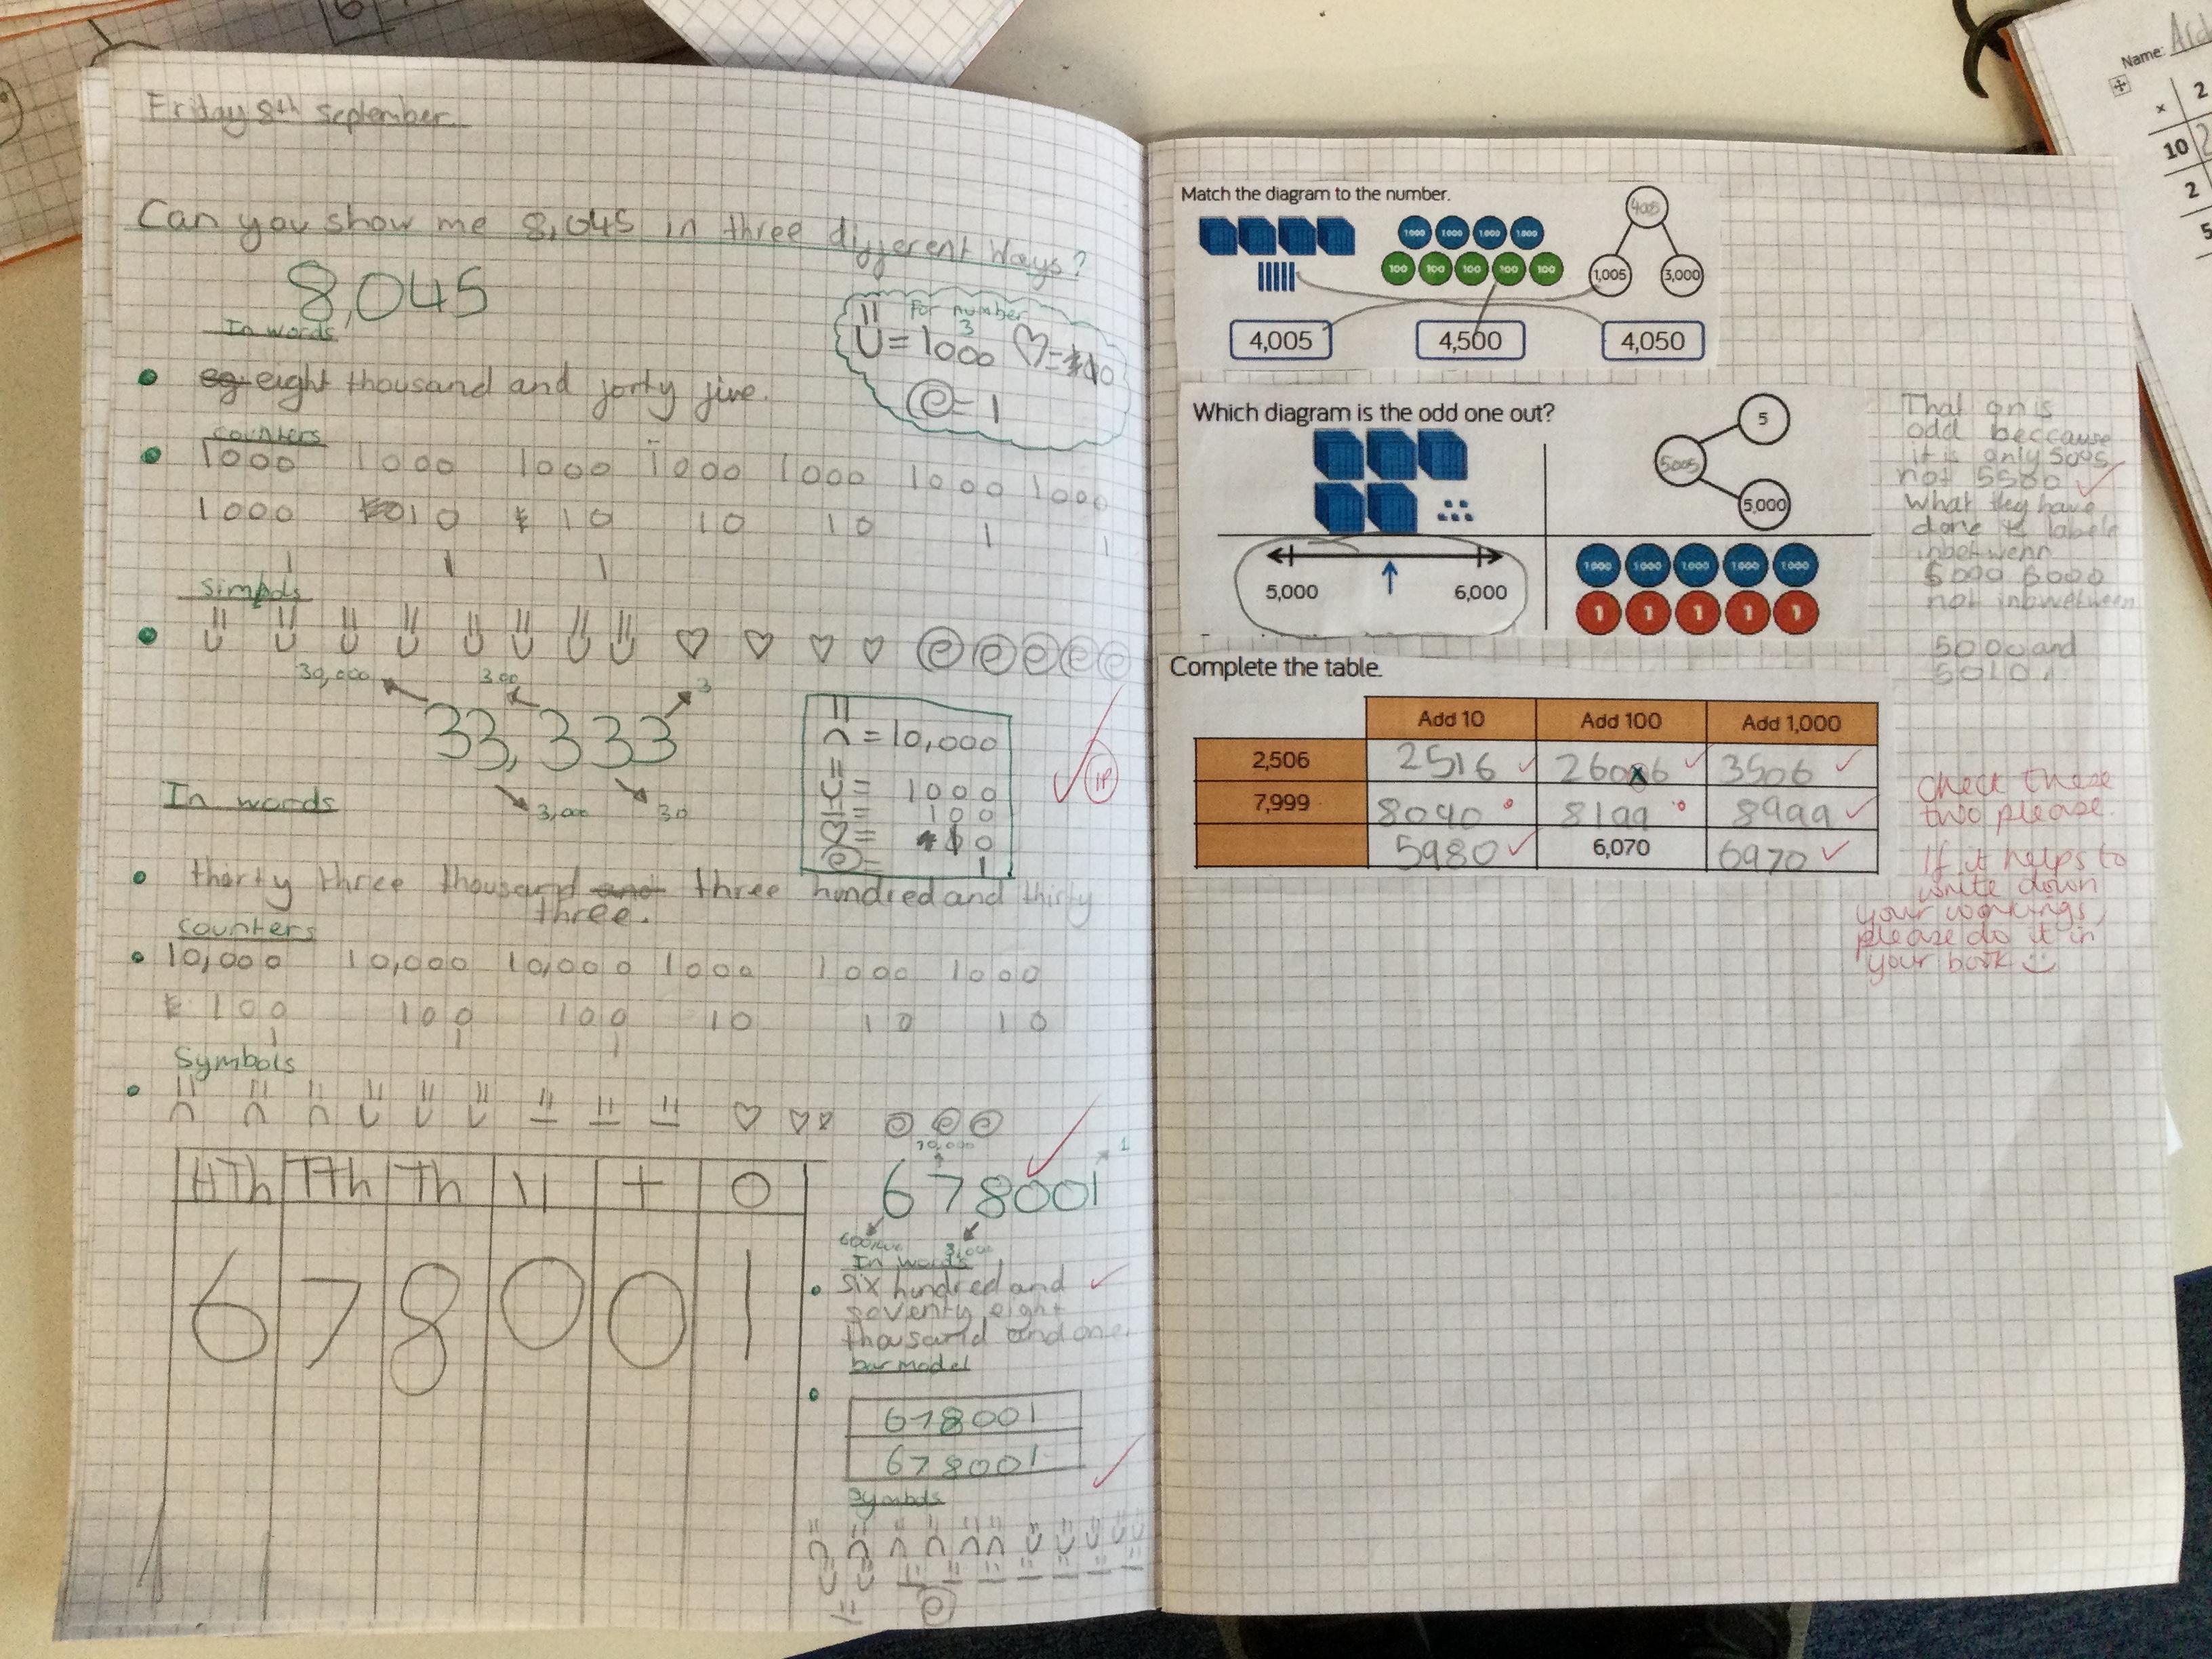 Friday 8th September.
Can you show me 8,045 in three different ways?
8,045
In words
eg eight thousand and forty five.
For number
3
= 1000
= 1
counters
1000 1000 1000 1000 1000 1000 1000
1000 10 10 10 10 1 1
1 1 1
simbols
30,000 300 3
33,333
3,000 30
= 10,000
= 1000
= 100
=
= 1
1P
In words
tharty three thousand and three hundred and thirty
three.
counters
10,000 10,000 10,000 1000 1000 1000
100 100 100 10 10 10
1 1 1
Symbols
HTh TTh Th H T O
6 7 8 0 0 1
70,000 1
678001
In words
six hundred and
seventy eight
thousand and one.
bar model
678001
678001
Symbols
Match the diagram to the number.
1000 1000 1000 1000
100 100 100 100 100
4005
1,005 3,000
4,005 4,500 4,050
Which diagram is the odd one out?
5
5005
5,000
5,000 6,000
1000 1000 1000 1000 1000
1 1 1 1 1
That on is
odd beccause
it is only 5005
not 5500
what they have
done is labele
inbetwenn
5000 6000
not inbewteen
5000 and
5010.
Complete the table.
Add 10 Add 100 Add 1,000
2,506 2516 2606 3506
7,999 8040 8199 8999
5980 6,070 6970
check these
two please.
If it helps to
write down
your workings,
please do it in
your book
Name:
× 2
10 2
2
5